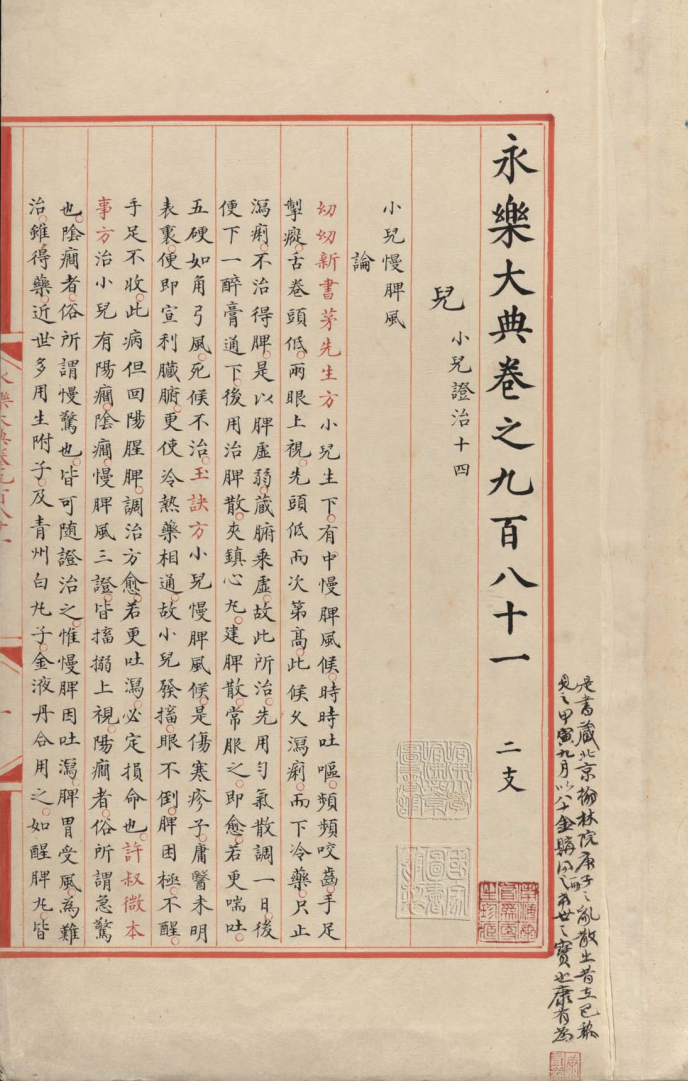 永樂大典卷之九百八十一 二支
兒 小兒證治十四
小兒慢脾風
論
幼幼新書茅先生方小兒生下有中慢脾風候時時吐嘔頻頻咬齒手足
掣瘲舌卷頭低兩眼上視先頭低而次第高此候久瀉痢而下冷藥只止
瀉痢不治得脾是以脾虛弱藏腑乘虛故此所治先用勻氣散調一日後
便下一醉膏通下後用治脾散夾鎮心丸建脾散常服之即愈若更喘吐
五硬如角弓風死候不治玉訣方小兒慢脾風候是傷寒疹子庸醫未明
表裏便即宣利臟腑更使冷熱藥相通故小兒發搐眼不倒脾困極不醒
手足不收此病但回陽醒脾調治方愈若更吐瀉必定損命也許叔微本
事方治小兒有陽癎陰癎慢脾風三證皆搐搦上視陽癎者俗所謂急驚
也陰癎者俗所謂慢驚也皆可隨證治之惟慢脾因吐瀉脾胃受風為難
治雖得藥近世多用生附子及青州白丸子金液丹合用之如醒脾丸皆
永樂大典卷九百八十一
是書藏北京翰林院庚子之亂散出昔在巴黎
見之甲寅九月以八十金購得之希世之寶也康有為